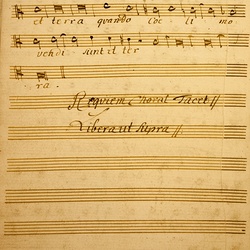 et terra quando Coe li mo
vendi sunt et ter
ra.
Requiem Choral Tacet //
Libera ut Supra //